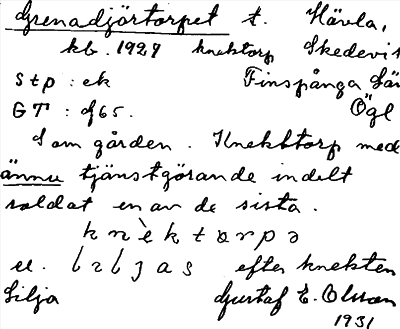 Grenadjörtorpet t. Hävla,
kb. 1927 knektorp Skedevi
Stp : ek Finspånga Lä
GT : df65. Ögl
Som gården. Knekttorp med
ännu tjänstgörande indelt
soldat en av de sista.
knèktɔrpə
el. lɪlȷas efter knekten
Lilja Gustaf E. Olsson
1931